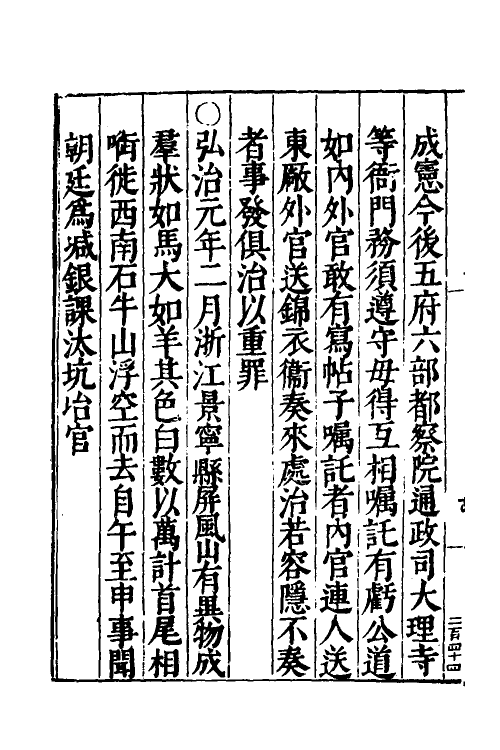 成憲今後五府六部都察院通政司大理寺
等衙門務須遵守毋得互相囑託有虧公道
如內外官敢有寫帖子囑託者內官連人送
東厰外官送錦衣衞奏來處治若容隱不奏
者事發俱治以重罪
○弘治元年二月浙江景寧縣屏風山有異物成
羣狀如馬大如羊其色白數以萬計首尾相
銜從西南石牛山浮空而去自午至申事聞
朝廷爲减銀課汰坑冶官
二百四十四